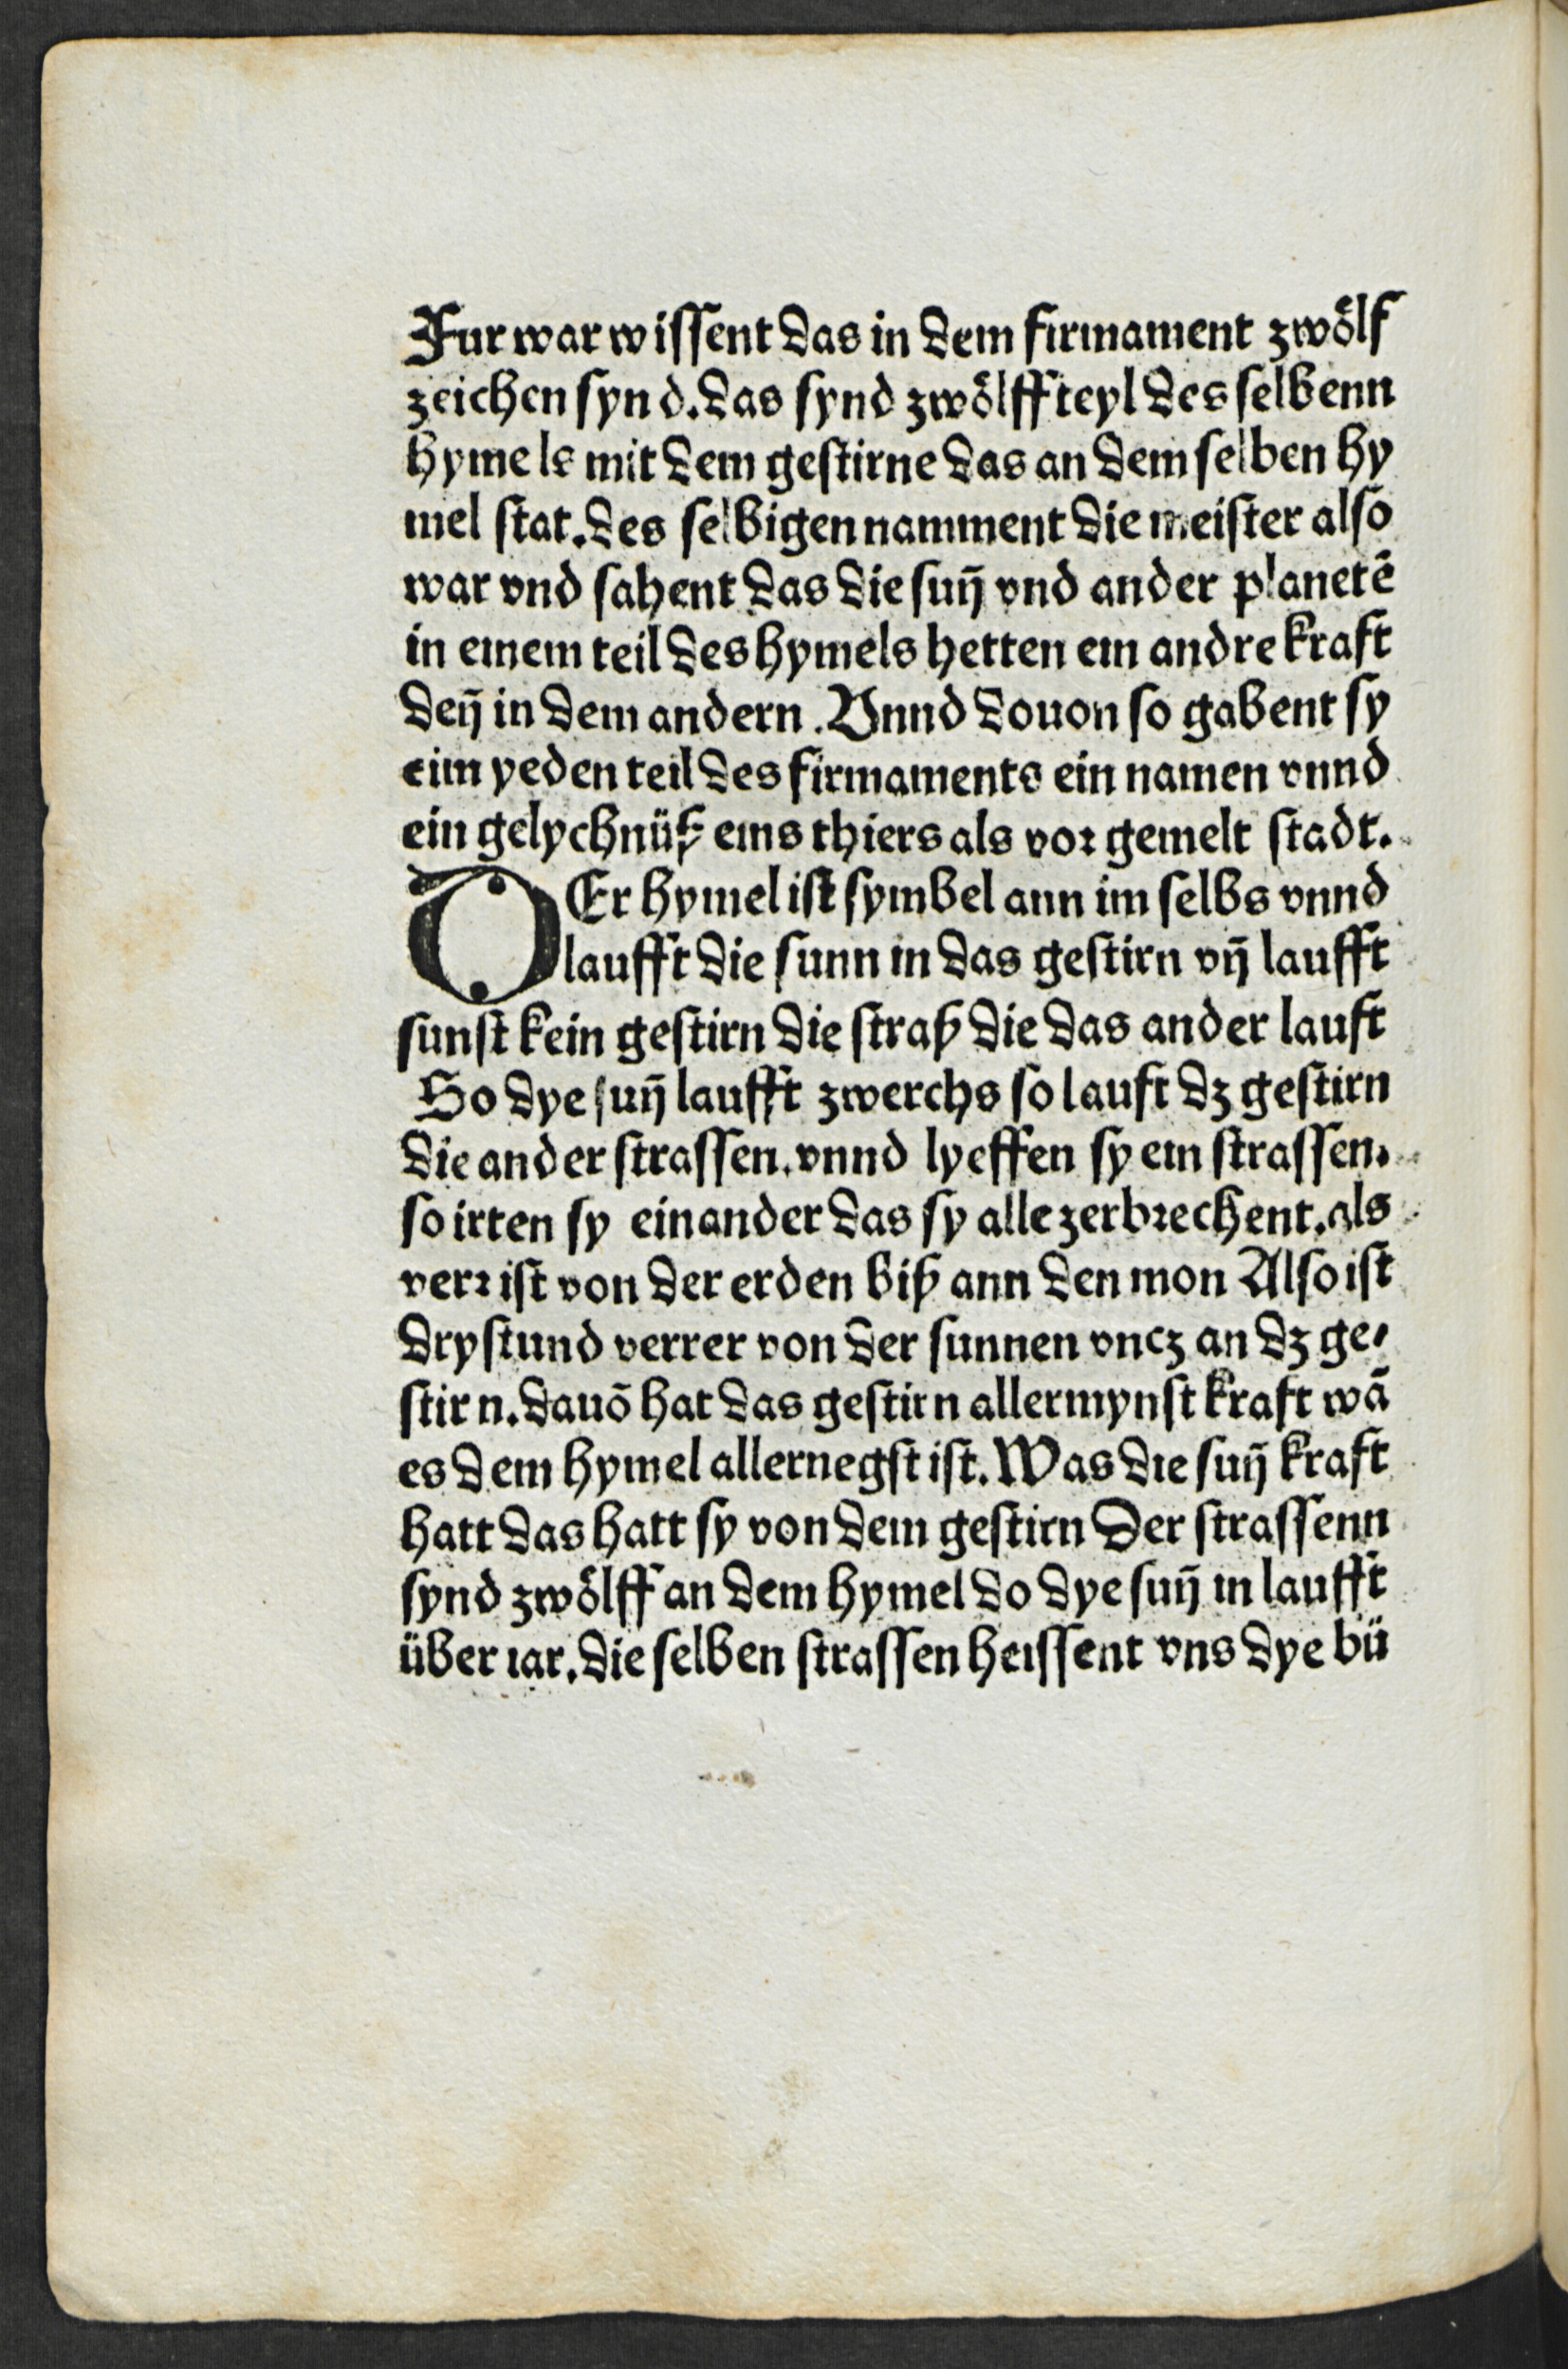 Fur war wissent das in dem firmament zwölf
zeichen synd. das synd zwölff teyl des selbenn
hymels mit dem gestirne das an dem selben hy
mel stat. des selbigen namment die meister also
war vnd sahent das die suñ vnd ander planetē
in einem teil des hymels hetten ein andre kraft
deñ in dem andern. Vnnd douon so gabent sy
eim yeden teil des firmaments ein namen vnnd
ein gelychnüß eins thiers als vor gemelt stadt.
DEr hymel ist symbel ann im selbs vnnd
laufft die sunn in das gestirn vñ laufft
sunst kein gestirn die straß die das ander lauft
So dye suñ laufft zwerchs so lauft dz gestirn
die ander strassen. vnnd lyeffen sy ein strassen.
so irten sy einander das sy alle zerbrechent. als
verr ist von der erden biß ann den mon Also ist
dry stund verrer von der sunnen vncz an dz ge⸗
stirn. dauō hat das gestirn allermynst kraft wā
es dem hymel allernegst ist. Was die suñ kraft
hatt das hatt sy von dem gestirn Der strassenn
synd zwölff an dem hymel do dye suñ in laufft
über iar. die selben strassen heissent vns dye bü